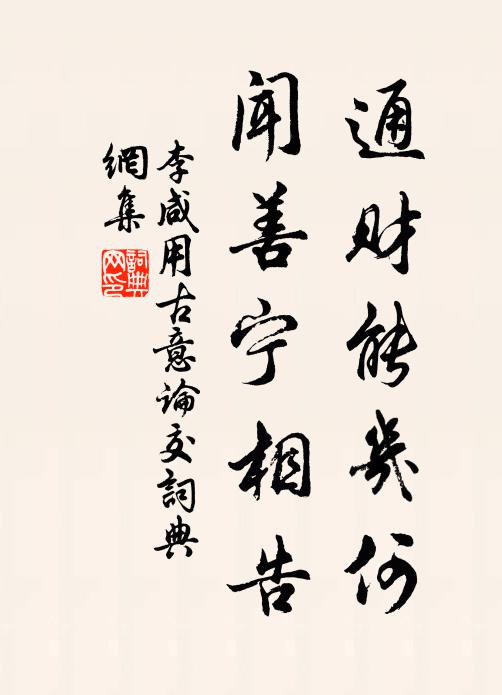 通财能几何
闻善宁相告
李咸用古意論交詞典
網集
詞典网印